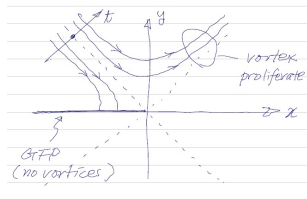 t
y
vortex
proliferate
x
GFP
(no vortices)